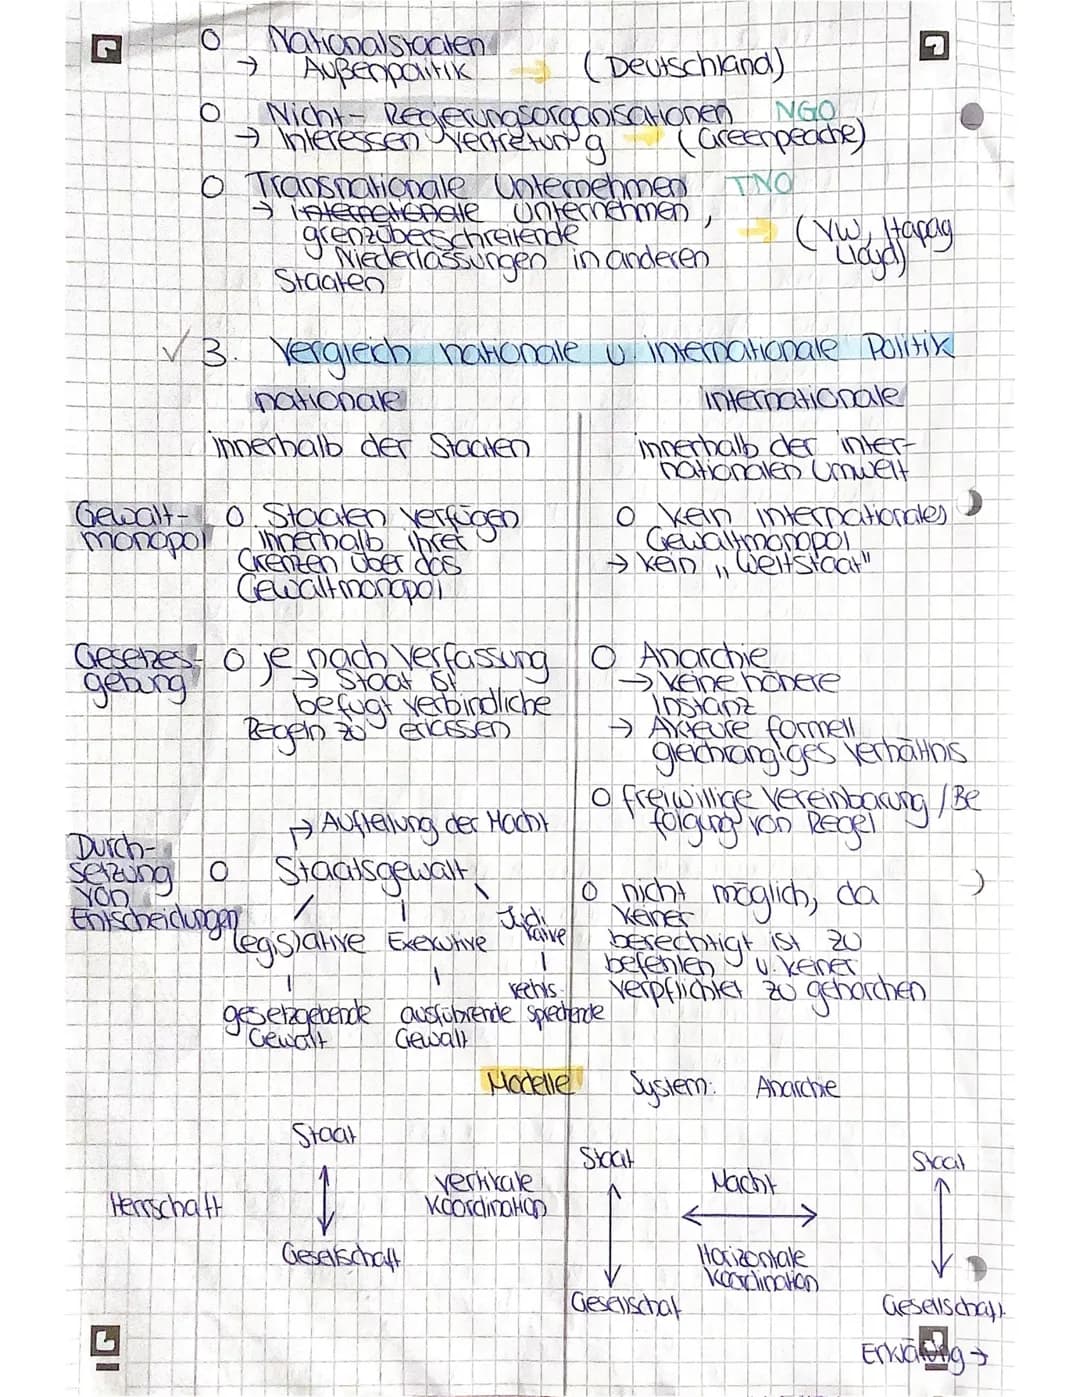 O Nationalstaaten
→ Außenpolitik → (Deutschland)
O Nicht-Regierungsorganisationen NGO
→ Interessen vertretung → (Greenpeache)
O Transnationale Unternehmen TNO
→ internationale Unternehmen,
grenzüberschreitende → (VW, Hapag
Niederlassungen in anderen Lloyd)
Staaten
✓ 3. Vergleich nationale u. internationale Politik
nationale internationale
innerhalb der Staaten
innerhalb der inter-
nationalen Umwelt
Gewalt-
monopol
O Staaten verfügen
innerhalb ihrer
Grenzen über das
Gewaltmonopol
O kein internationales
Gewaltmonopol
→ kein „Weltstaat"
Gesetzes-
gebung
O je nach Verfassung
→ Staat ist
befugt verbindliche
Regeln zu erlassen
O Anarchie
→ keine höhere
Instanz
→ Akteure formell
gleichrangiges Verhältnis
O freiwillige Vereinbarung / Be
folgung von Regel
Durch-
setzung
von
Entscheidungen
→ Aufteilung der Macht
O Staatsgewalt
Legislative Exekutive Judi
kative
gesetzgebende ausführende rechts-
sprechende
Gewalt Gewalt
O nicht möglich, da
keiner
berechtigt ist zu
befehlen u. keiner
verpflichtet zu gehorchen
Modelle System: Anarchie
Staat
Herrschaft
vertikale
Koordination
Gesellschaft
Staat
Macht
Staat
Horizontale
Koordination
Gesellschaf
Gesellschaft
Erklärung →